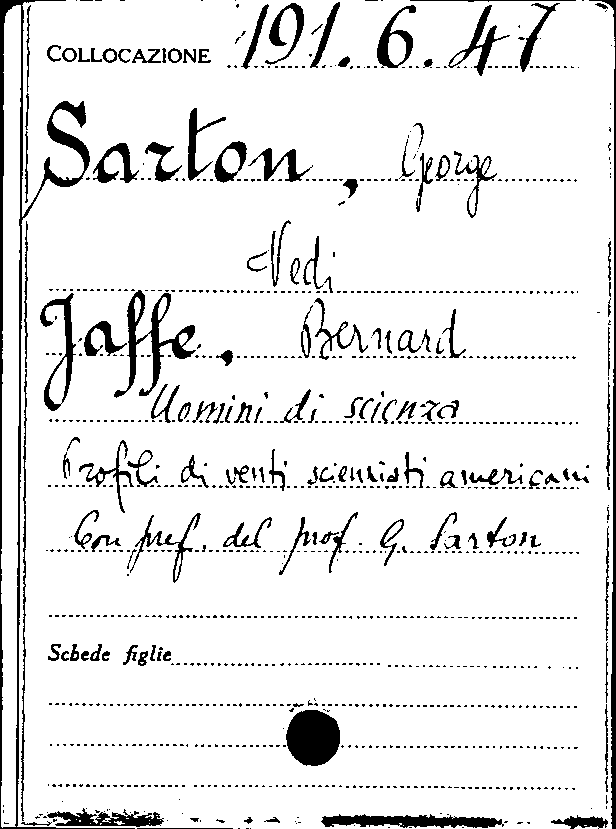 COLLOCAZIONE 191.6.47
Sarton, George
Vedi
Jaffe, Bernard
Uomini di scienza
Profili di venti scienziati americani
Con pref. del prof. G. Sarton
Schede figlie